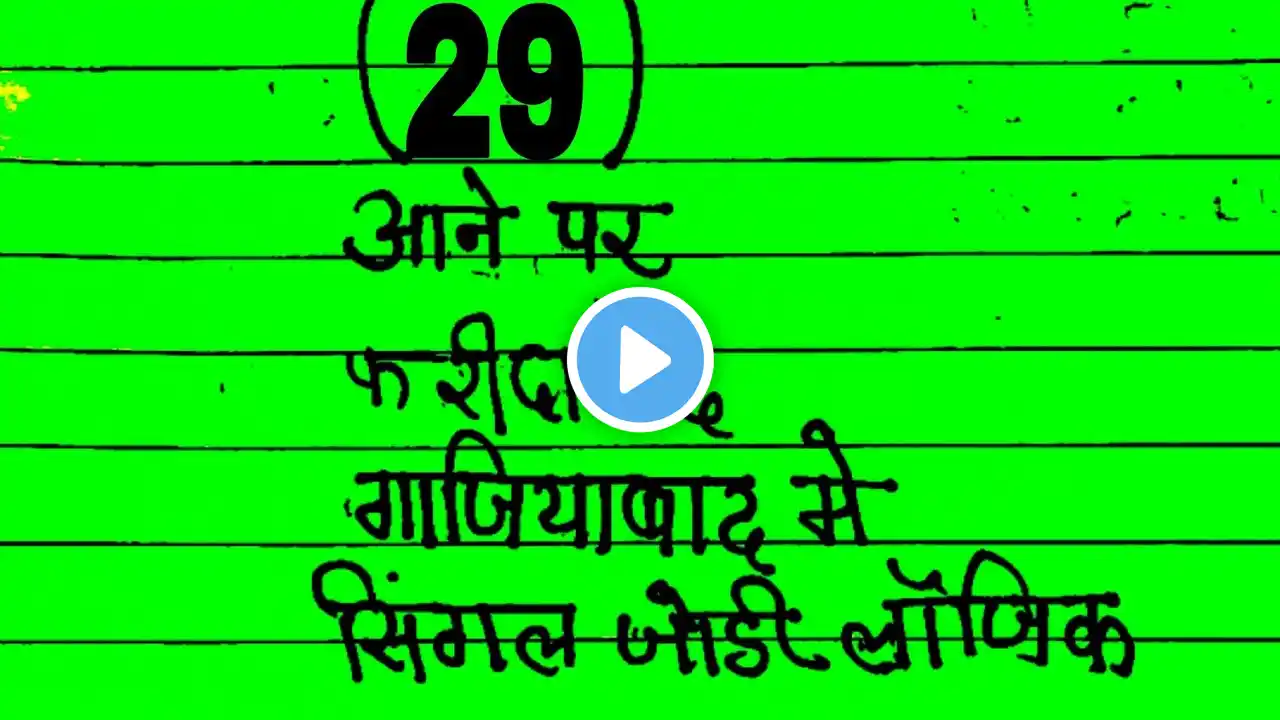 29
आने पर
गाजियाबाद में
सिंगल जोडी लॉजिक